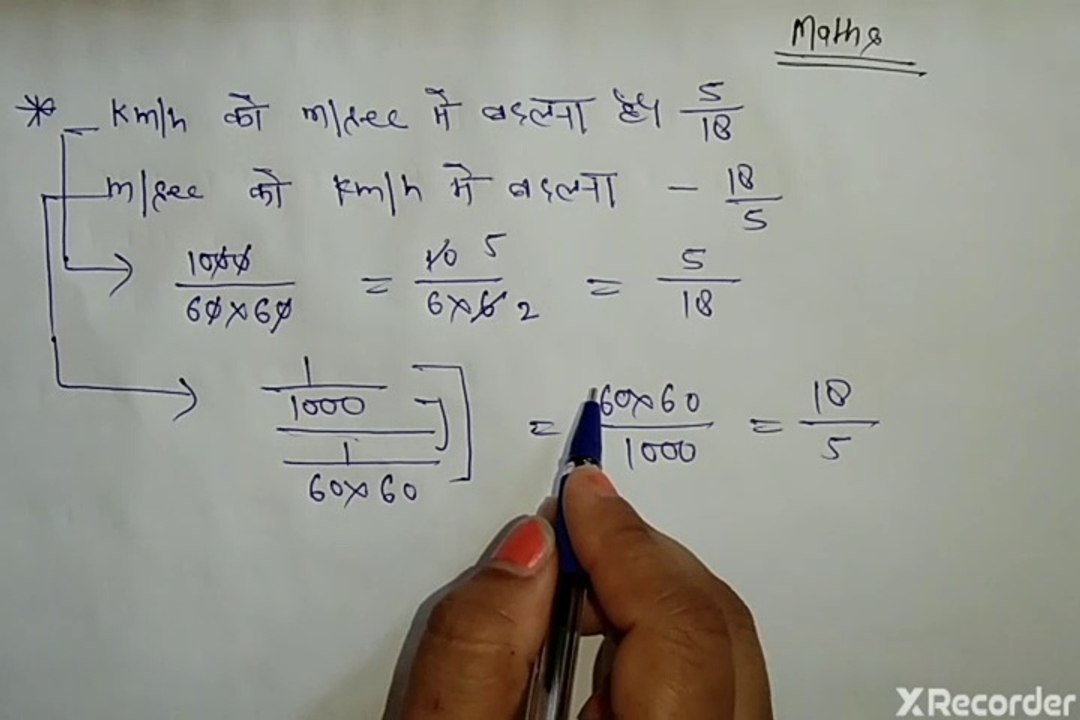 Maths
* km/h को m/sec में बदलना है। 5/18
m/sec को km/h में बदलना - 18/5
→ 1000/60×60 = 10 5/6×6 2 = 5/18
→ 1/1000 / 1/60×60 = 60×60/1000 = 18/5
XRecorder